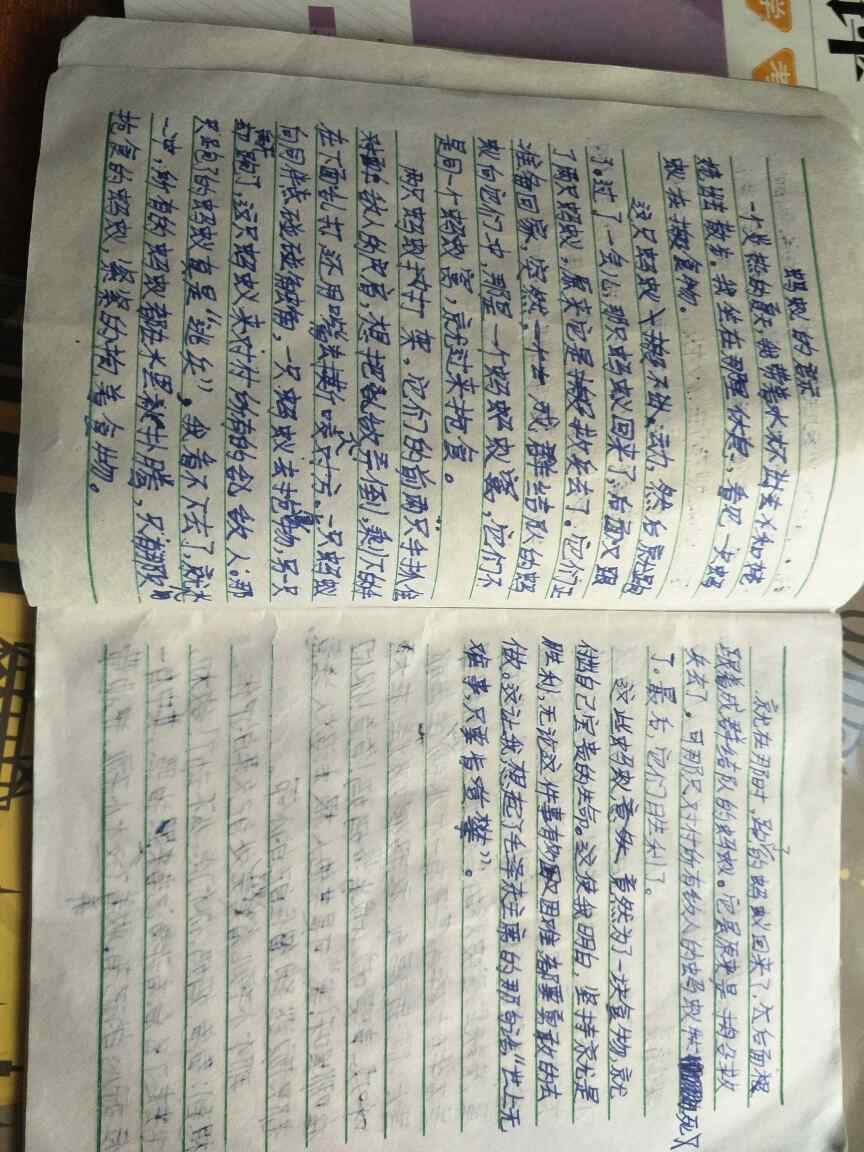 蚂蚁的意示
一个炎热的夏天，我带着水杯出去水和楼
楼班散步。我坐在那里休息，看见一只蚂
蚁在搬食物。
这只蚂蚁搬不动，然后就跑
了。过了一会儿，那只蚂蚁回来了，后面又跟
了两只蚂蚁，原来它是搬救兵去了。它们正
准备回家，突然，一个成群结队的蚂
蚁向它们冲，那是一个蚂蚁窝，它们不
是同一个蚂蚁窝，就过来抢食。
两只蚂蚁打架。它们的前两只手抓住
敌人的皮肯，想把敌人弄倒，乘下的
在下面乱打还用嘴去撕咬对方。一只蚂蚁
向同伴碰碰触角，一只蚂蚁去抢物，另一只
却跑了，这只蚂蚁来对付所有的敌人，那
只跑了的蚂蚁真是“逃兵”。我看不下去了，就水
一冲，所有的蚂蚁都在水里扑腾，只有那只
抢食的蚂蚁，紧紧的抱着食物。
就在那时，跑的蚂蚁回来了，后面根
跟着成群结队的蚂蚁。它原来是搬救
兵去了。可那只对付所有敌人的蚂蚁死
了。最后，它们胜利了。
这些蚂蚁竟然为了一块食物，就
付出自己宝贵的生命。这使我明白，坚持就是
胜利，无论这件事有多困难都要勇敢的去
做。这让我想起了毛泽东主席的那句话“世上无
难事，只要肯登攀”。
学
考